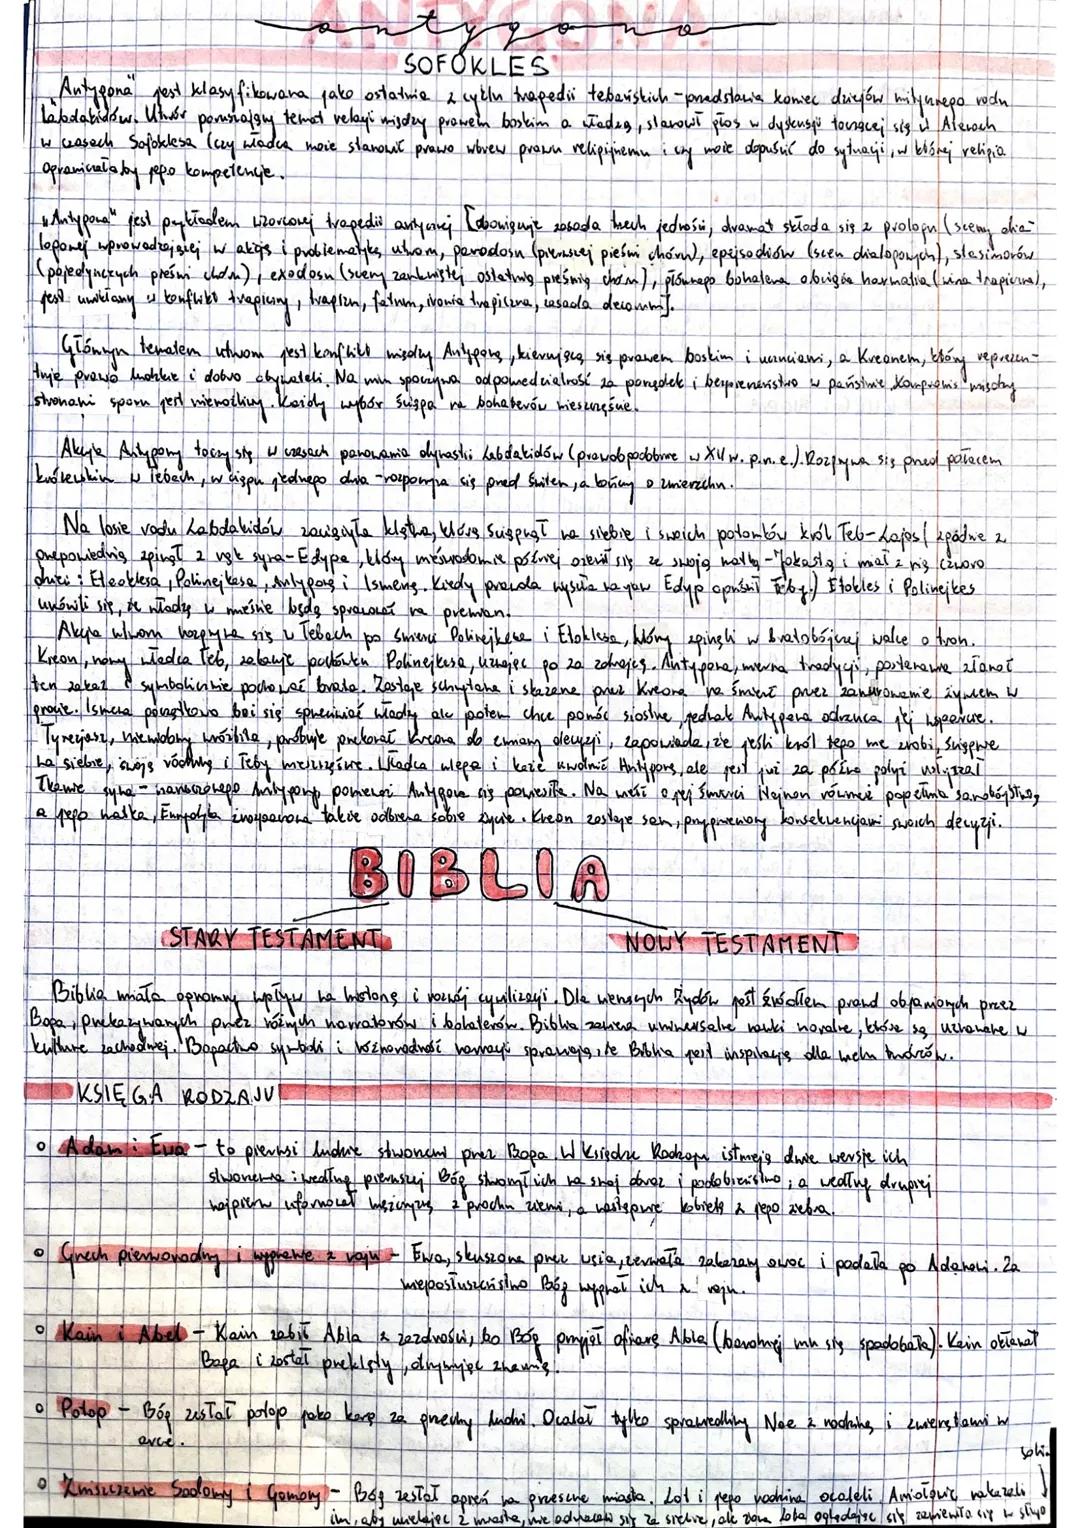 ANTYGONA
antygona
SOFOKLES
"Antygona" jest klasyfikowana jako ostatnia z cyklu tragedii tebańskich - przedstawia koniec dziejów mitycznego rodu
Labdakidów. Utwór poruszający temat relacji między prawem boskim a władzą, stanowił głos w dyskusji toczącej się w Atenach
w czasach Sofoklesa (czy władca może stanowić prawo wbrew prawu religijnemu i czy może dopuścić do sytuacji, w której religia
ograniczałaby jego kompetencje.
"Antygona" jest przykładem wzorcowej tragedii antycznej [obowiązuje zasada trzech jedności, dramat składa się z prologu (sceny dia-
logowej wprowadzającej w akcję i problematykę utworu, parodosu (pierwszej pieśni chóru), epejsodiów (scen dialogowych), stasimonów
(pojedynczych pieśni chóru), exodosu (sceny zamkniętej ostatnią pieśnią chóru), głównego bohatera obciąża harmatia (wina tragiczna),
jest uwikłany w konflikt tragiczny, tragizm, fatum, ironia tragiczna, zasada decorum].
Głównym tematem utworu jest konflikt między Antygoną, kierującą się prawem boskim i uczuciami, a Kreonem, który reprezen-
tuje prawo ludzkie i dobro obywateli. Na nim spoczywa odpowiedzialność za porządek i bezpieczeństwo w państwie. Kompromis między
stronami sporu jest niemożliwy. Każdy wybór ściąga na bohaterów nieszczęście.
Akcja Antygony toczy się w czasach panowania dynastii Labdakidów (prawdopodobnie w XIII w. p.n.e.). Rozgrywa się przed pałacem
królewskim w Tebach, w ciągu jednego dnia - rozpoczyna się przed świtem, a kończy o zmierzchu.
Na losie rodu Labdakidów zaciążyła klątwa, którą ściągnął na siebie i swoich potomków król Teb - Lajos (zgodnie z
przepowiednią zginął z rąk syna - Edypa, który nieświadomie później ożenił się ze swoją matką - Jokastą i miał z nią czworo
dzieci: Eteoklesa, Polinejkesa, Antygonę i Ismenę. Kiedy prawda wyszła na jaw Edyp opuścił Teby.) Etokles i Polinejkes
umówili się, że władzę w mieście będą sprawować na przemian.
Akcja utworu rozgrywa się w Tebach po śmierci Polinejkesa i Etoklesa, którzy zginęli w bratobójczej walce o tron.
Kreon, nowy władca Teb, zakazuje pochówku Polinejkesa, uznając go za zdrajcę. Antygona, wierna tradycji, postanawia złamać
ten zakaz i symbolicznie pochować brata. Zostaje schwytana i skazana przez Kreona na śmierć przez zamurowanie żywcem w
grocie. Ismena początkowo boi się sprzeciwiać władzy ale potem chce pomóc siostrze, jednak Antygona odrzuca jej wsparcie.
Tyrezjasz, niewidomy wróżbita, próbuje przekonać Kreona do zmiany decyzji, zapowiada, że jeśli król tego nie zrobi, ściągnie
na siebie, swoją rodzinę i Teby nieszczęście. Władca ulega i każe uwolnić Antygonę, ale jest już za późno gdyż usłyszał
łkanie syna - narzeczonego Antygony ponieważ Antygona się powiesiła. Na wieść o jej śmierci Hajmon również popełnia samobójstwo,
a jego matka, Eurydyka zrozpaczona także odbiera sobie życie. Kreon zostaje sam, przygnieciony konsekwencjami swoich decyzji.
BIBLIA
STARY TESTAMENT NOWY TESTAMENT
Biblia miała ogromny wpływ na historię i rozwój cywilizacji. Dla wierzących Żydów jest źródłem prawd objawionych przez
Boga, przekazywanych przez różnych narratorów i bohaterów. Biblia zawiera uniwersalne nauki moralne, które są uznawane w
kulturze zachodniej. Bogactwo symboli i różnorodność narracji sprawiają, że Biblia jest inspiracją dla wielu twórców.
KSIĘGA RODZAJU
Adam i Ewa - to pierwsi ludzie stworzeni przez Boga. W Księdze Rodzaju istnieją dwie wersje ich
stworzenia: według pierwszej Bóg stworzył ich na swój obraz i podobieństwo, a według drugiej
najpierw uformował mężczyznę z prochu ziemi, a następnie kobietę z jego żebra.
Grzech pierworodny i wygnanie z raju - Ewa, skuszona przez węża, zerwała zakazany owoc i podała go Adamowi. Za
nieposłuszeństwo Bóg wygnał ich z raju.
Kain i Abel - Kain zabił Abla z zazdrości, bo Bóg przyjął ofiarę Abla (bardziej mu się spodobała). Kain okłamał
Boga i został przeklęty, otrzymując znamię.
Potop - Bóg zesłał potop jako karę za grzechy ludzi. Ocalał tylko sprawiedliwy Noe z rodziną i zwierzętami w
arce.
Zniszczenie Sodomy i Gomory - Bóg zesłał ogień na grzeszne miasta. Lot i jego rodzina ocaleli. Aniołowie nakazali
im, aby uciekając z miasta, nie odwracali się za siebie, ale żona Lota oglądając się zamieniła się w słup
soli.